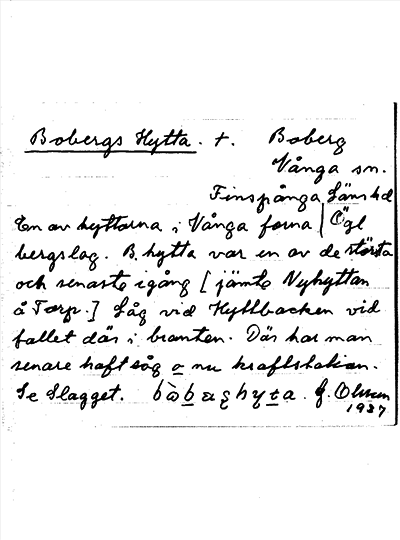 Bobergs Hytta. +. Boberg
Vånga sn.
Finspånga Läns hd
En av hyttorna i Vånga forna | Ögl
bergslag. B. hytta var en av de största
och senast igång [jämte Nyhyttan
å Torp.] Låg vid Hyttbacken vid
fallet där i branten. Där har man
senare haft såg o nu kraftstation.
Se Slagget. G. Olsson
1937